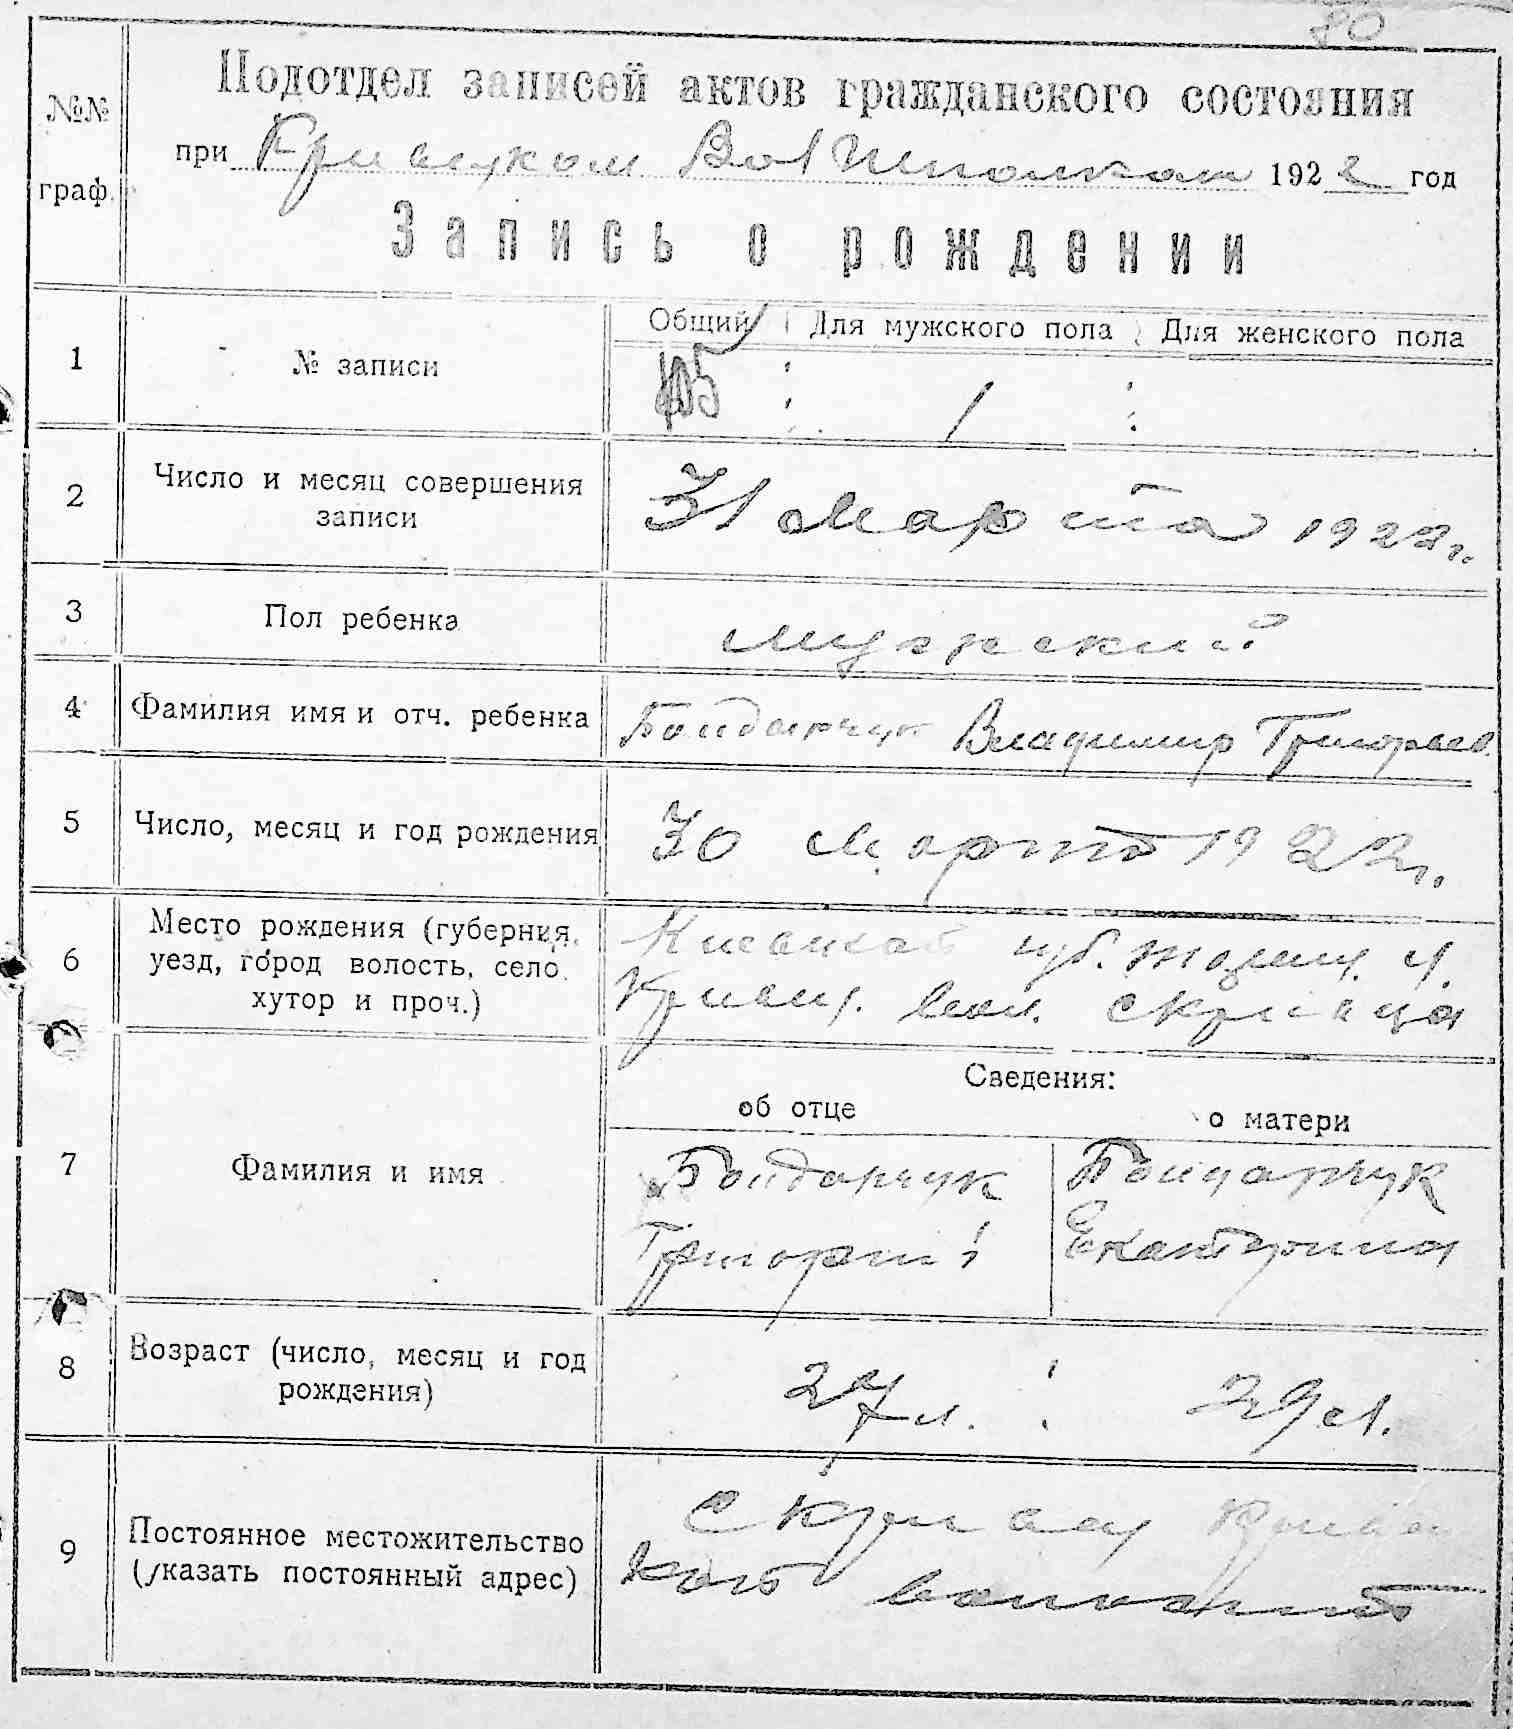 80
Подотдел записей актов гражданского состояния
№№ граф.
при Кривецком Вол 1922 год
Запись о рождении
Общий Для мужского пола Для женского пола
1 № записи 105 /
2 Число и месяц совершения записи 31 марта 1922 г.
3 Пол ребенка мужской
4 Фамилия имя и отч. ребенка Бондарчук Владимир Григорьев.
5 Число, месяц и год рождения 30 марта 1922 г.
6 Место рождения (губерния, уезд, город волость, село, хутор и проч.)
Киевской губ.
вол.
Сведения:
об отце о матери
7 Фамилия и имя
Бондарчук Бондарчук
Григорий Екатерина
8 Возраст (число, месяц и год рождения) 27 л. 29 л.
9 Постоянное местожительство (указать постоянный адрес)
волости